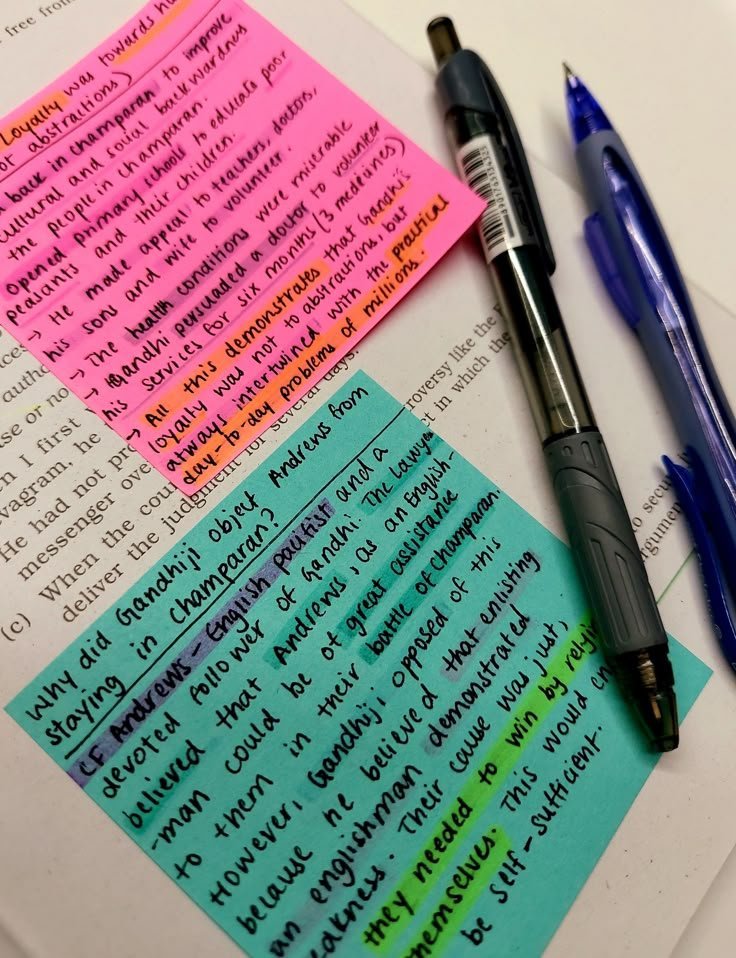 free from
Loyalty was towards hu
or abstractions)
back in champaran to improve
cultural and social backwardness
the people in champaran.
opened primary schools to educate poor
peasants and their children.
→ He made appeal to teachers, doctors,
his sons and wife to volunteer.
→ The health conditions were miserable
→ Gandhi persuaded a doctor to volunteer
his services for six months (3 medicines)
→ All this demonstrates that Gandhi's
loyalty was not to abstractions, but
always intertwined with the practical
day-to-day problems of millions.
autho
se or no
n I first
vagram, he
He had not pre
messenger ove
(c) When the cou
deliver the judgment for several days.
roversy like the
t in which the
to secur
rgumen
Why did Gandhiji object Andrews from
staying in Champaran?
CF Andrews - English pacifist and a
devoted follower of Gandhi. The Lawyer
believed that Andrews, as an English-
-man could be of great assistance
to them in their battle of champaran.
However, Gandhiji opposed of this
because he believed that enlisting
an englishman demonstrated
eakness. Their cause was just,
they needed to win by relyin
hemselves. This would en
be self-sufficient.
8901765134323